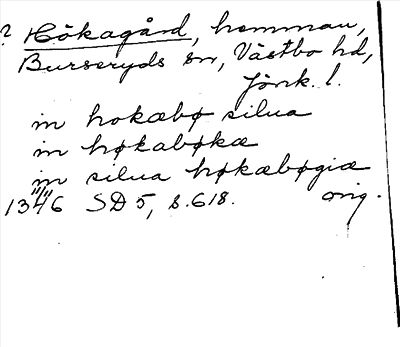 ? Hökagård, hemman,
Burseryds sn, Västbo hd,
Jönk. l.
in hokæbø silua
in høkabøkæ
in silua høkæbøgiæ
1346 SD 5, s. 618. orig.